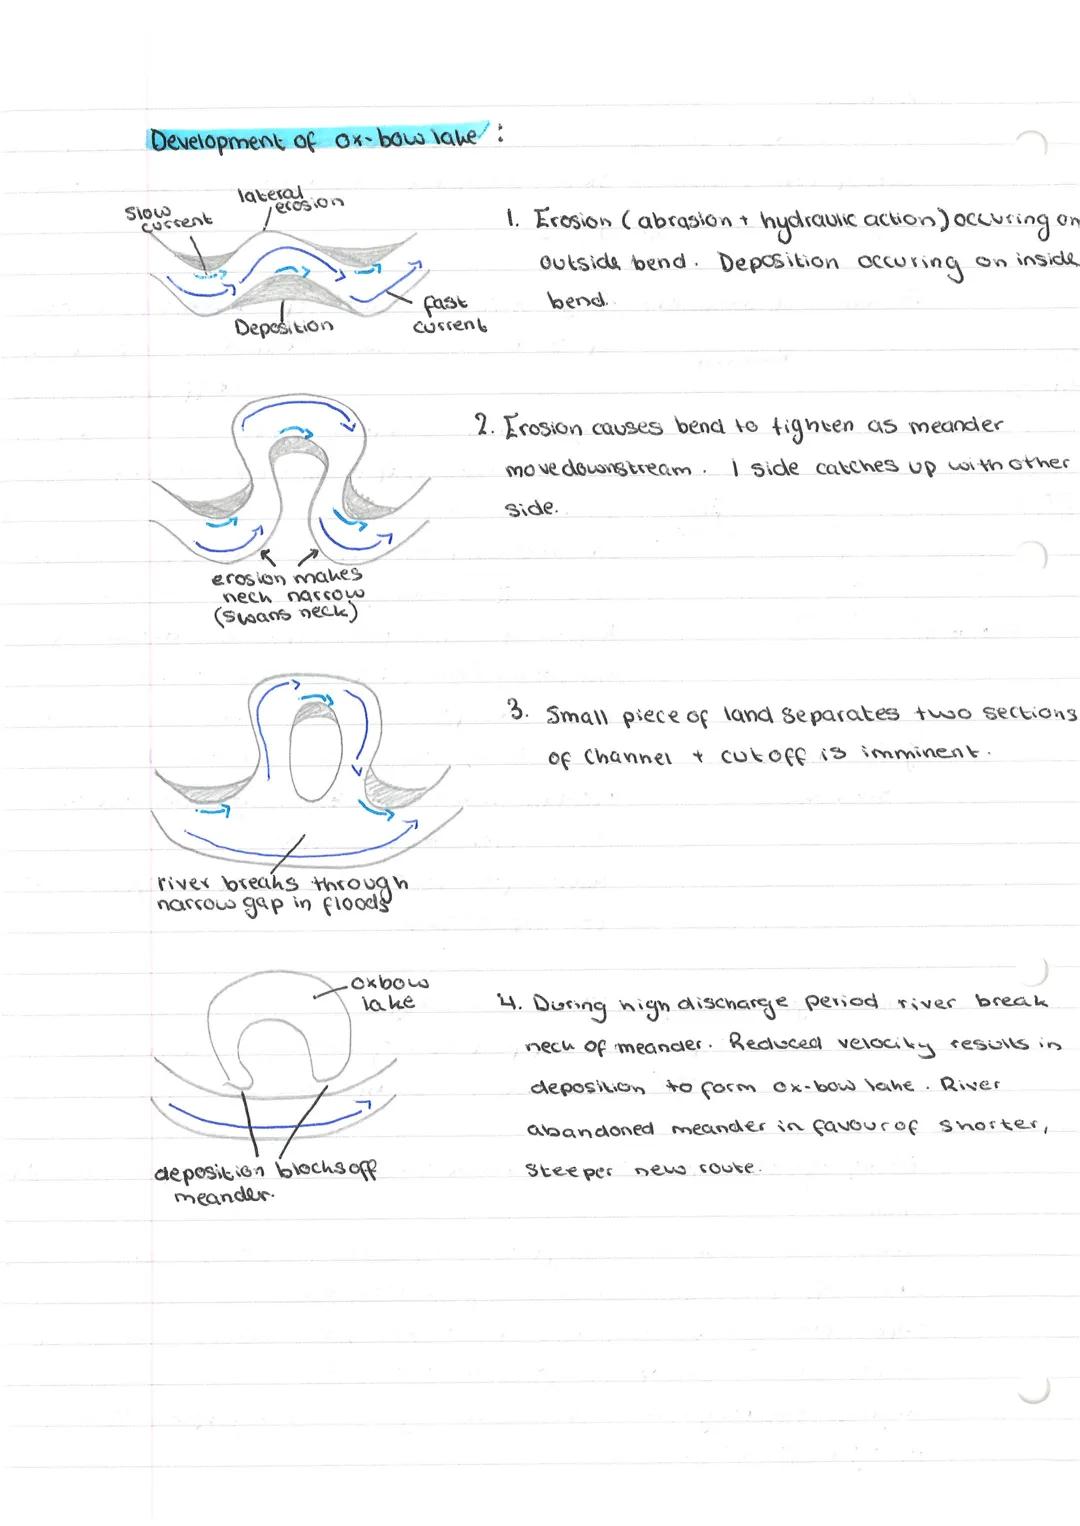 Development of ox-bow lake:
Slow
current
lateral
erosion
Deposition
fast
current
1. Erosion (abrasion + hydraulic action) occuring on
outside bend. Deposition occuring on inside
bend.
2. Erosion causes bend to tighten as meander
move downstream. 1 side catches up with other
side.
erosion makes
neck narrow
(swans neck)
3. Small piece of land separates two sections
of channel + cutoff is imminent.
river breaks through
narrow gap in floods
oxbow
lake
4. During high discharge period river break
neck of meander. Reduced velocity results in
deposition to form ox-bow lake. River
abandoned meander in favour of shorter,
steeper new route.
deposition blocks off
meander.